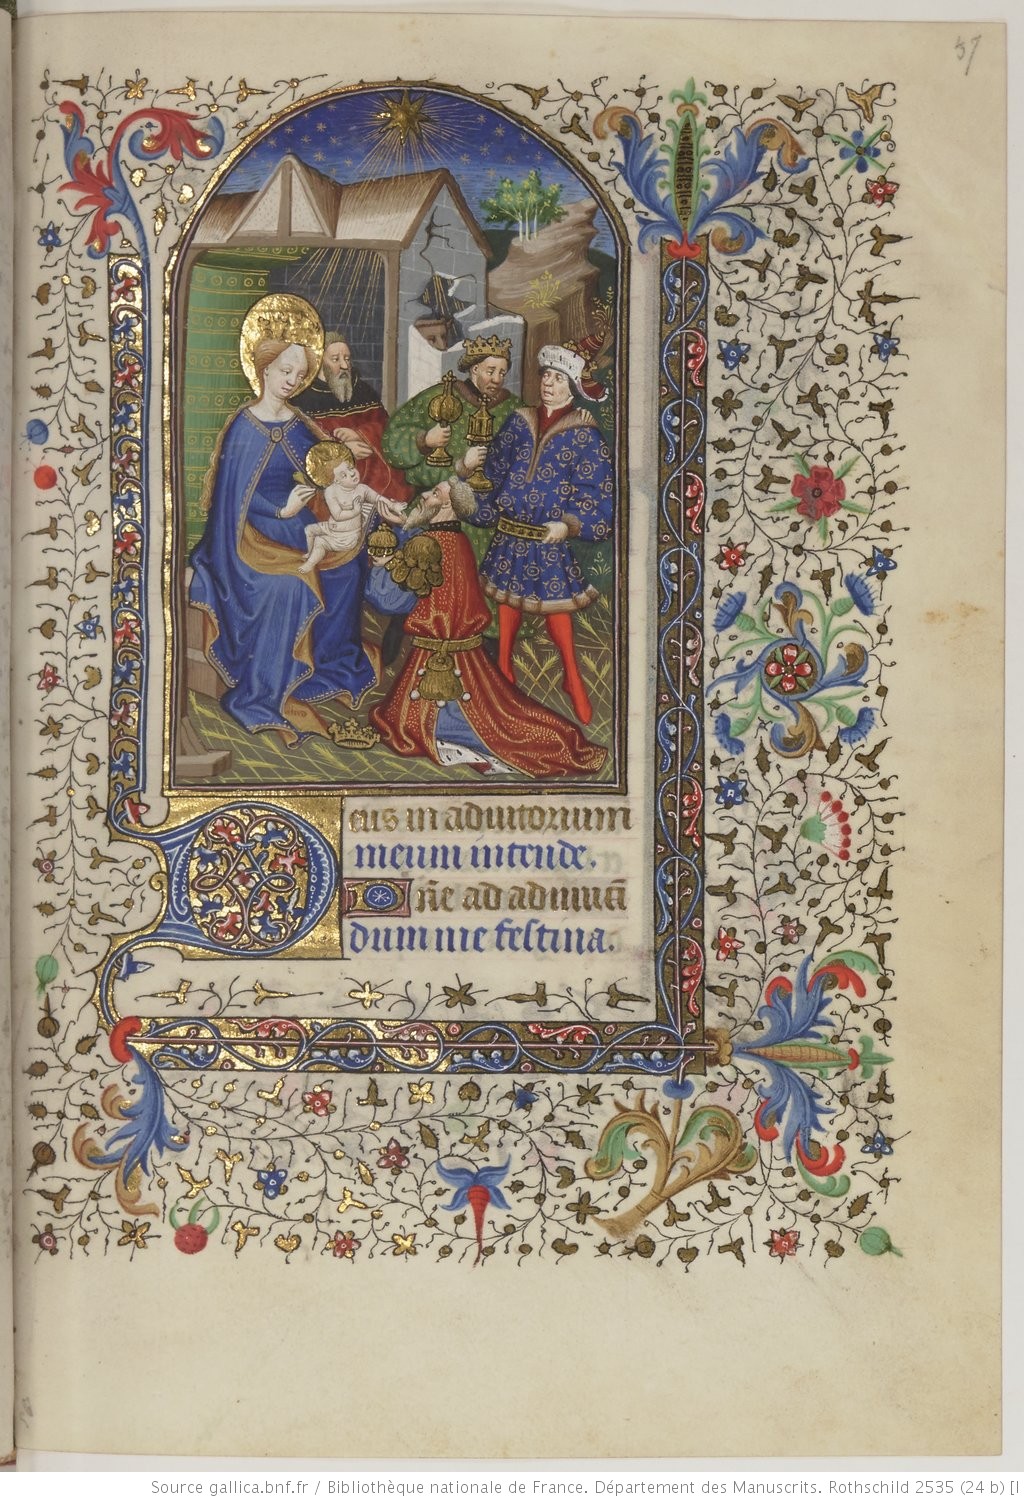 57
Deus in adiutorium
meum intende.
Dn̄e ad adiuuā
dum me festina.
Source gallica.bnf.fr / Bibliothèque nationale de France. Département des Manuscrits. Rothschild 2535 (24 b) [I